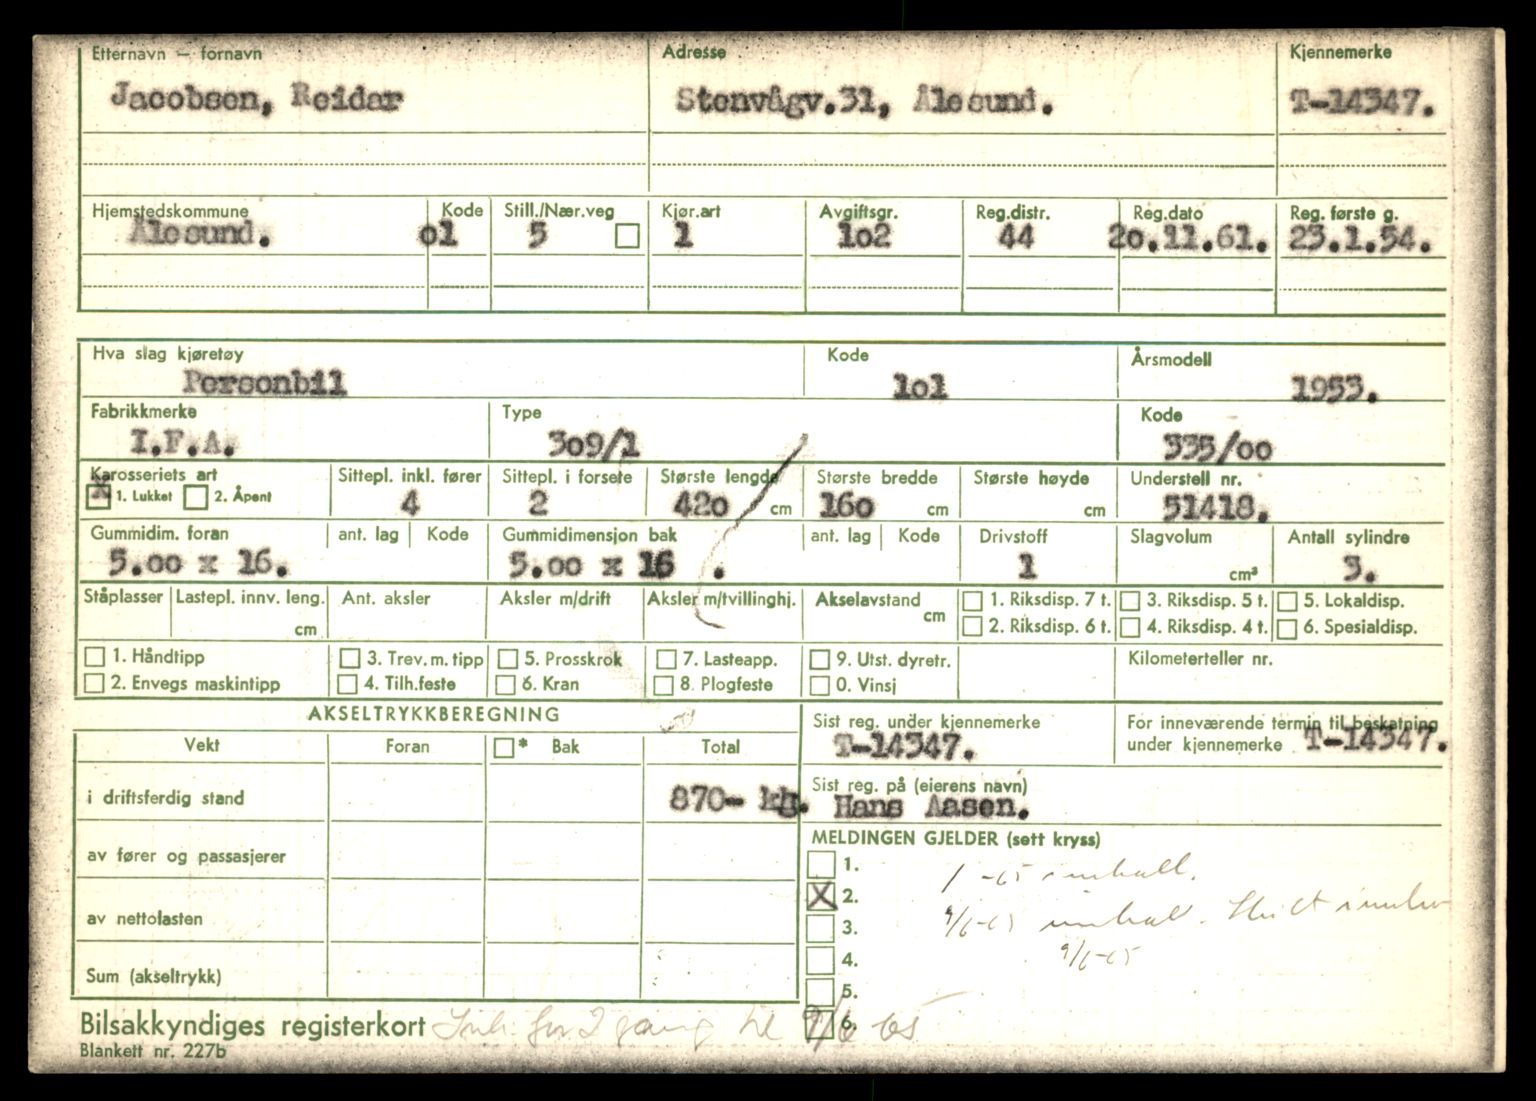 Etternavn — fornavn Adresse Kjennemerke
Jacobsen, Reidar Stenvågv.31, Ålesund. T-14347.
Hjemstedskommune Kode Still./Nær.veg Kjør.art Avgiftsgr. Reg.distr. Reg.dato Reg. første g.
Ålesund. o1 5 1 1o2 44 2o.11.61. 23.1.54.
Hva slag kjøretøy Kode Årsmodell
Personbil 1o1 1953.
Fabrikkmerke Type Kode
I.F.A. 3o9/1 335/oo
Karosseriets art Sittepl. inkl. fører Sittepl. i forsete Største lengde Største bredde Største høyde Understell nr.
X 1. Lukket 2. Åpent 4 2 42o cm 16o cm cm 51418.
Gummidim. foran ant. lag Kode Gummidimensjon bak ant. lag Kode Drivstoff Slagvolum Antall sylindre
5.oo x 16. 5.oo x 16 . 1 cm³ 3.
Ståplasser Lastepl. innv. leng. Ant. aksler Aksler m/drift Aksler m/tvillinghj. Akselavstand 1. Riksdisp. 7 t. 3. Riksdisp. 5 t. 5. Lokaldisp.
cm cm 2. Riksdisp. 6 t. 4. Riksdisp. 4 t. 6. Spesialdisp.
1. Håndtipp 3. Trev. m. tipp 5. Prosskrok 7. Lasteapp. 9. Utst. dyretr. Kilometerteller nr.
2. Envegs maskintipp 4. Tilh.feste 6. Kran 8. Plogfeste 0. Vinsj
AKSELTRYKKBEREGNING Sist reg. under kjennemerke For inneværende termin til beskatning
Vekt Foran * Bak Total T-14347. under kjennemerke T-14347.
i driftsferdig stand 870- kg. Sist reg. på (eierens navn)
Hans Aasen.
av fører og passasjerer MELDINGEN GJELDER (sett kryss)
1.
X 2.
av nettolasten 3.
9/6-65
4.
Sum (akseltrykk) 5.
Bilsakkyndiges registerkort for 2 gang til 9/6 65 6.
Blankett nr. 227b